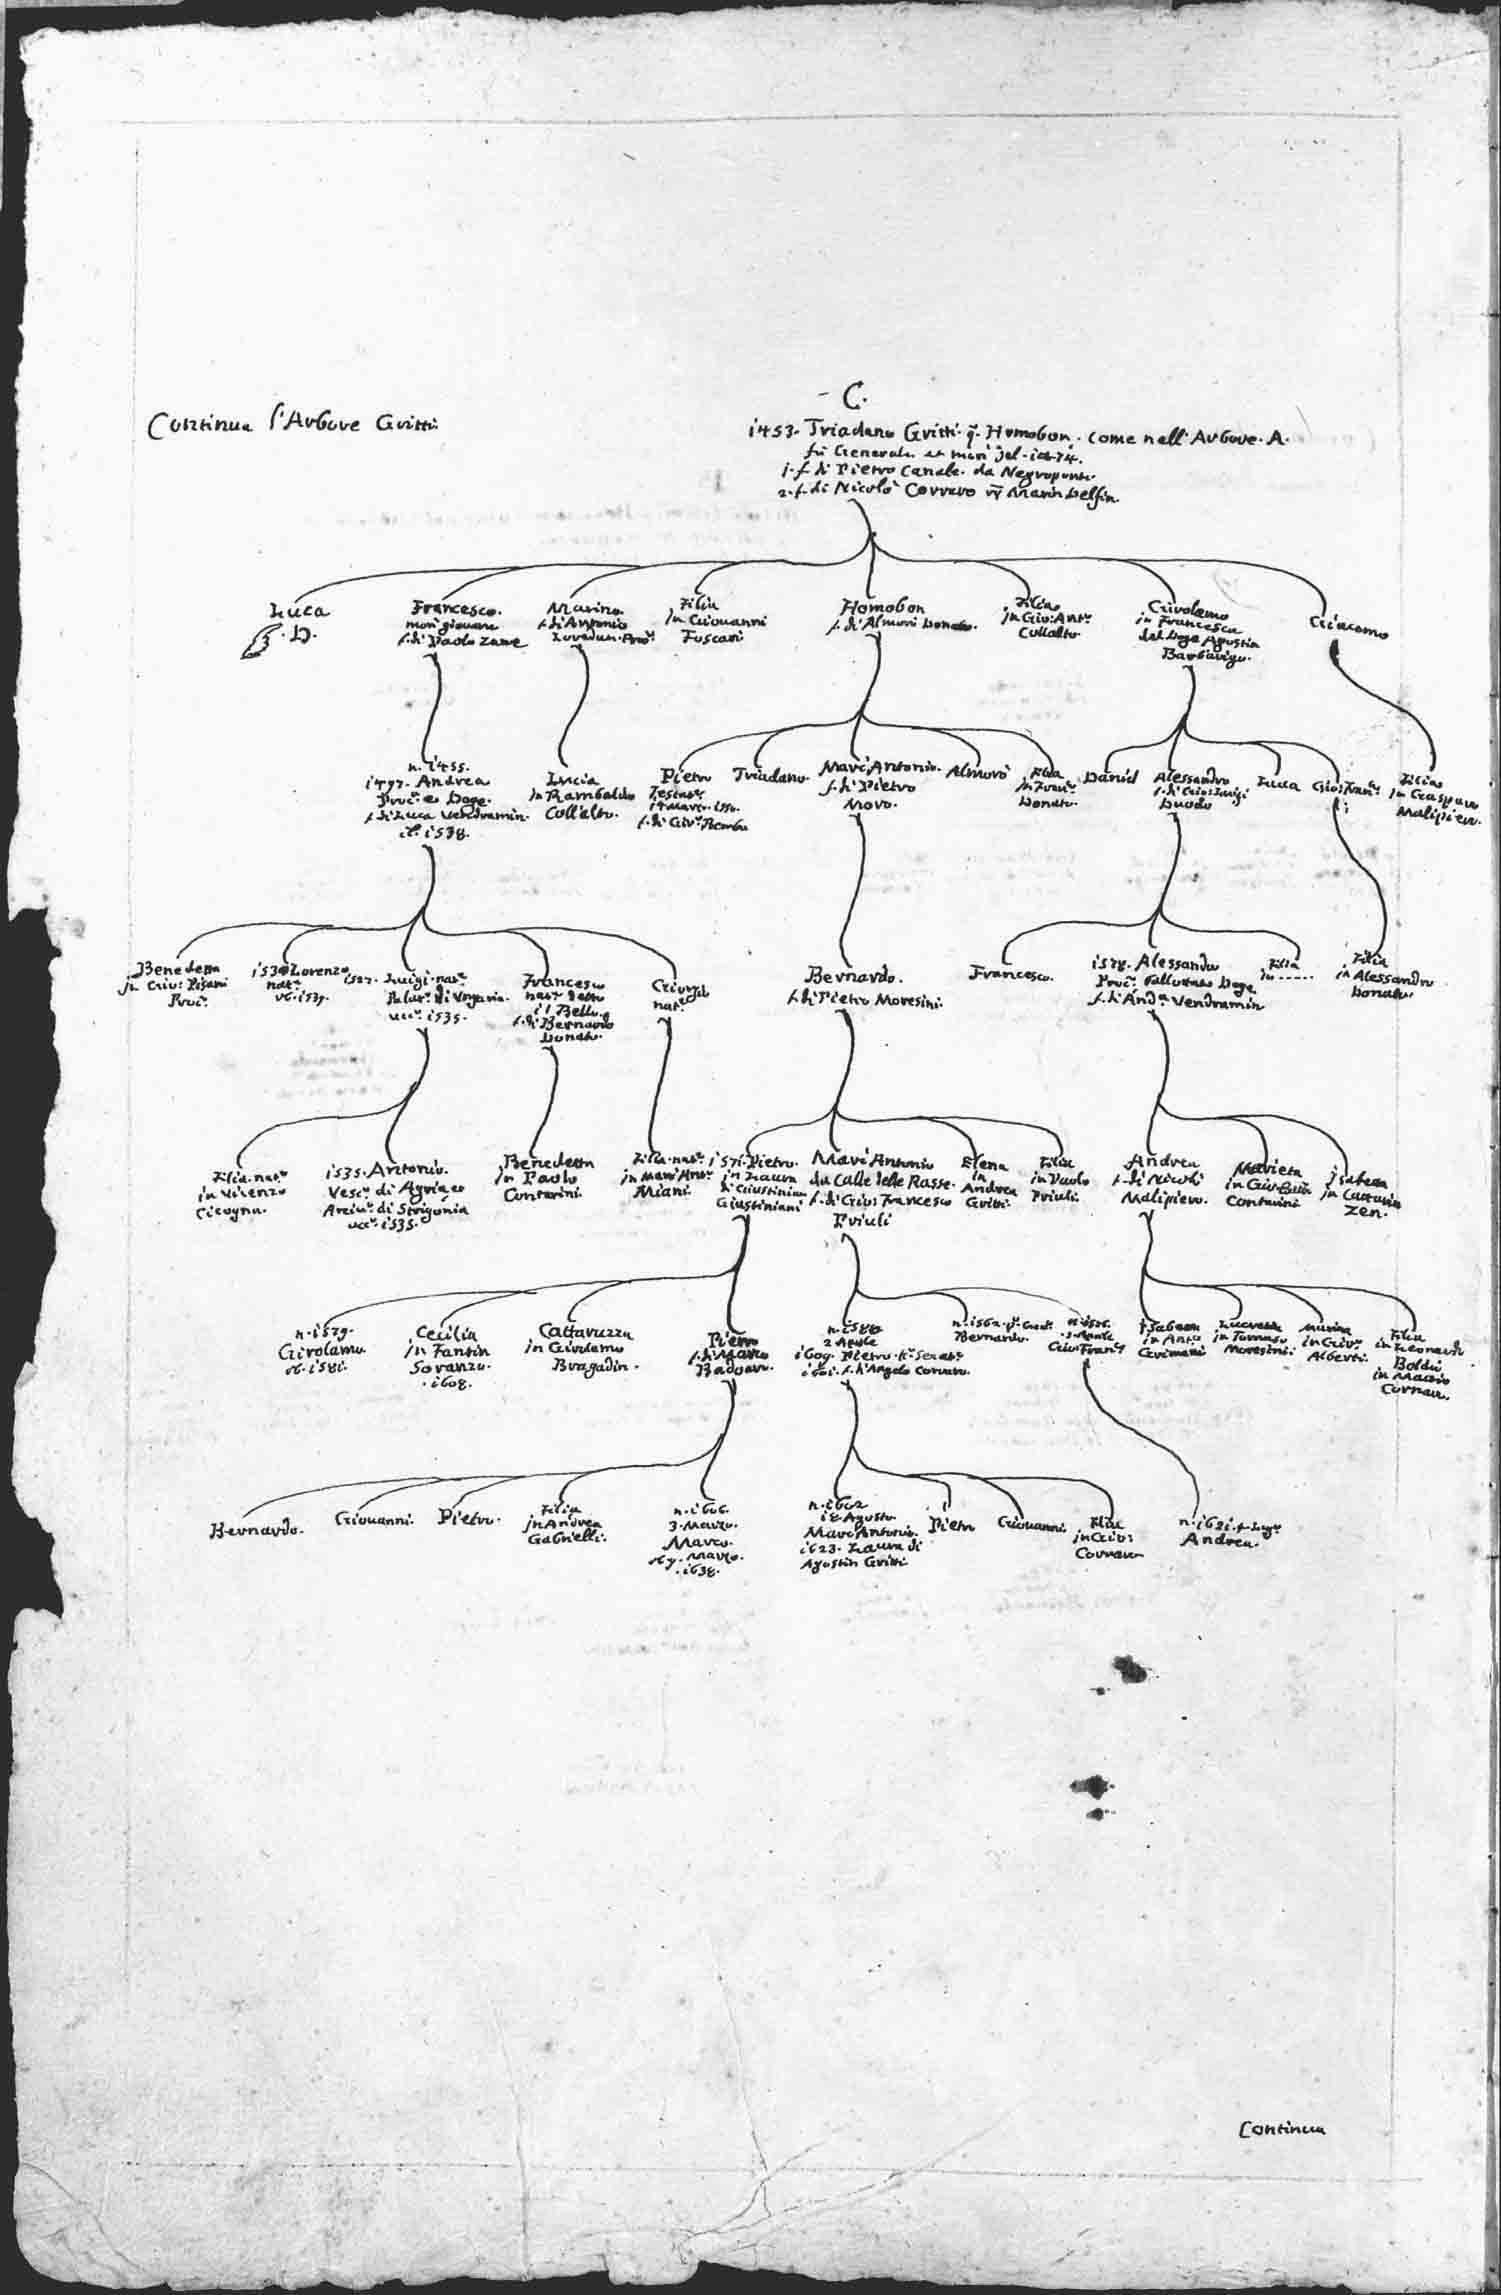 Continua l'Arbore Gritti
C.
1453. Triadano Gritti q. Homobon. come nell'Arbore. A.
fù Generale et morì del. 1474.
1. f. di Pietro Canale da Negroponte
2. f. di Nicolò Correro Marin Delfin
Luca
D.
Francesco
morì giovane
f. di Paolo Zane
Marino
f. di Antonio
Loredan Proc.
Filia
in Giovanni
Foscari
Homobon
f. di Almorò Donato.
Filia
in Gio: Ant.
Collalto
Girolamo
in Francesca
del Doge Agostin
Barbarigo.
Giacomo
n. 1455.
1497. Andrea
Proc. e Doge.
f. di Luca Vendramin.
1538.
Lucia
in Rambaldo
Collalto.
Pietro
Testat.
f. di Gir. Bembo
Triadano
Marc'Antonio.
f. di Pietro
Moro.
Almorò
Filia
in Franc.
Donato.
Daniel
Alessandro
f. di Gio: Luigi
Duodo
Luca
Gio: Fran.
Filia
in Gasparo
Malipiero.
Benedetta
in Gio: Pisani
Proc.
Lorenzo
nat.
ob. 1539.
1527. Luigi nat.
di Ungaria.
ucc. 1535.
Francesco
nat. detto
il Bello
f. di Bernardo
Donato.
Giorgio
nat.
Bernardo.
f. di Pietro Moresini.
Francesco.
1578. Alessandro
Proc. Ballottato Doge
f. di And. Vendramin
Filia
in ------
Filia
in Alessandro
Donato
Filia nat.
in Vicenzo
Cicogna.
1535. Antonio.
Vesc. di Agria e
Arciv. di Strigonia
ucc. 1535.
Benedetta
in Paolo
Contarini.
Filia nat.
in Marc'Ant.
Miani.
1571. Pietro.
in Laura
di Giustinian
Giustiniani
Marc'Antonio
da Calle delle Rasse.
f. di Gio: Francesco
Priuli
Elena
in
Andrea
Gritti.
Filia
in Paolo
Priuli.
Andrea
f. di Nicolò
Malipiero.
Marieta
in Gio: Batta
Contarini
Isabetta
in Cattarin
Zen.
n. 1579.
Girolamo.
ob. 1581.
Cecilia
in Fantin
Soranzo.
1608.
Cattaruzza
in Girolamo
Bragadin.
Pietro
f. di Marco
Badoaro.
n. 1580
2 Aprile
1609. Pietro
1601. f. d'Angelo Corraro.
n. 1562.
Bernardo.
Gio: Fran.
Isabetta
in Ant.
Grimani
Lucretia
in Tomaso
Moresini.
Marina
in Gir.
Alberti.
Filia
in Leonardo
Boldù
in Marco
Cornaro.
Bernardo.
Giovanni.
Pietro.
Filia
in Andrea
Gabrielli.
n. 1606.
3. Marzo.
Marco.
ob. 9. Marzo.
1638.
n. 1602
18 Agosto
Marc'Antonio.
1623. Laura di
Agostin Gritti
Pietro
Giovanni.
Filia
in Gio:
Corraro
n. 1621. 4 Lugo
Andrea.
Continua